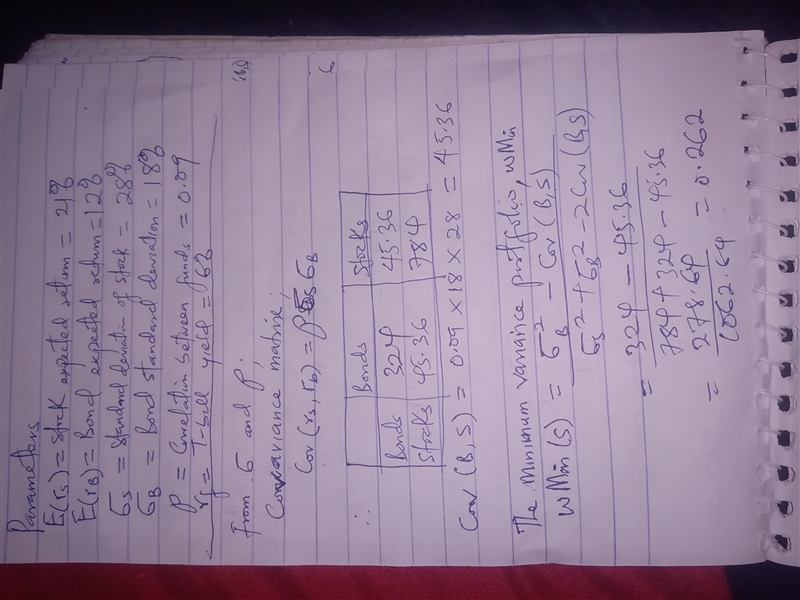 Parameters
E(rs) = Stock expected return = 21%
E(rB) = Bond expected return = 12%
σs = Standard deviation of stock = 28%
σB = Bond standard deviation = 18%
ρ = Correlation between funds = 0.09
rf = T-bill yield = 6%
From σ and ρ;
Covariance matrix;
Cov(rs, rb) = ρσsσB
Bonds Stocks
Bonds 324 45.36
Stocks 45.36 784
Cov (B, S) = 0.09 × 18 × 28 = 45.36
The Minimum variance portfolio, WMin
WMin(S) = σB² - Cov (B, S)
σs² + σB² - 2Cov (B, S)
= 324 - 45.36
784 + 324 - 45.36
= 278.64 = 0.262
1062.64